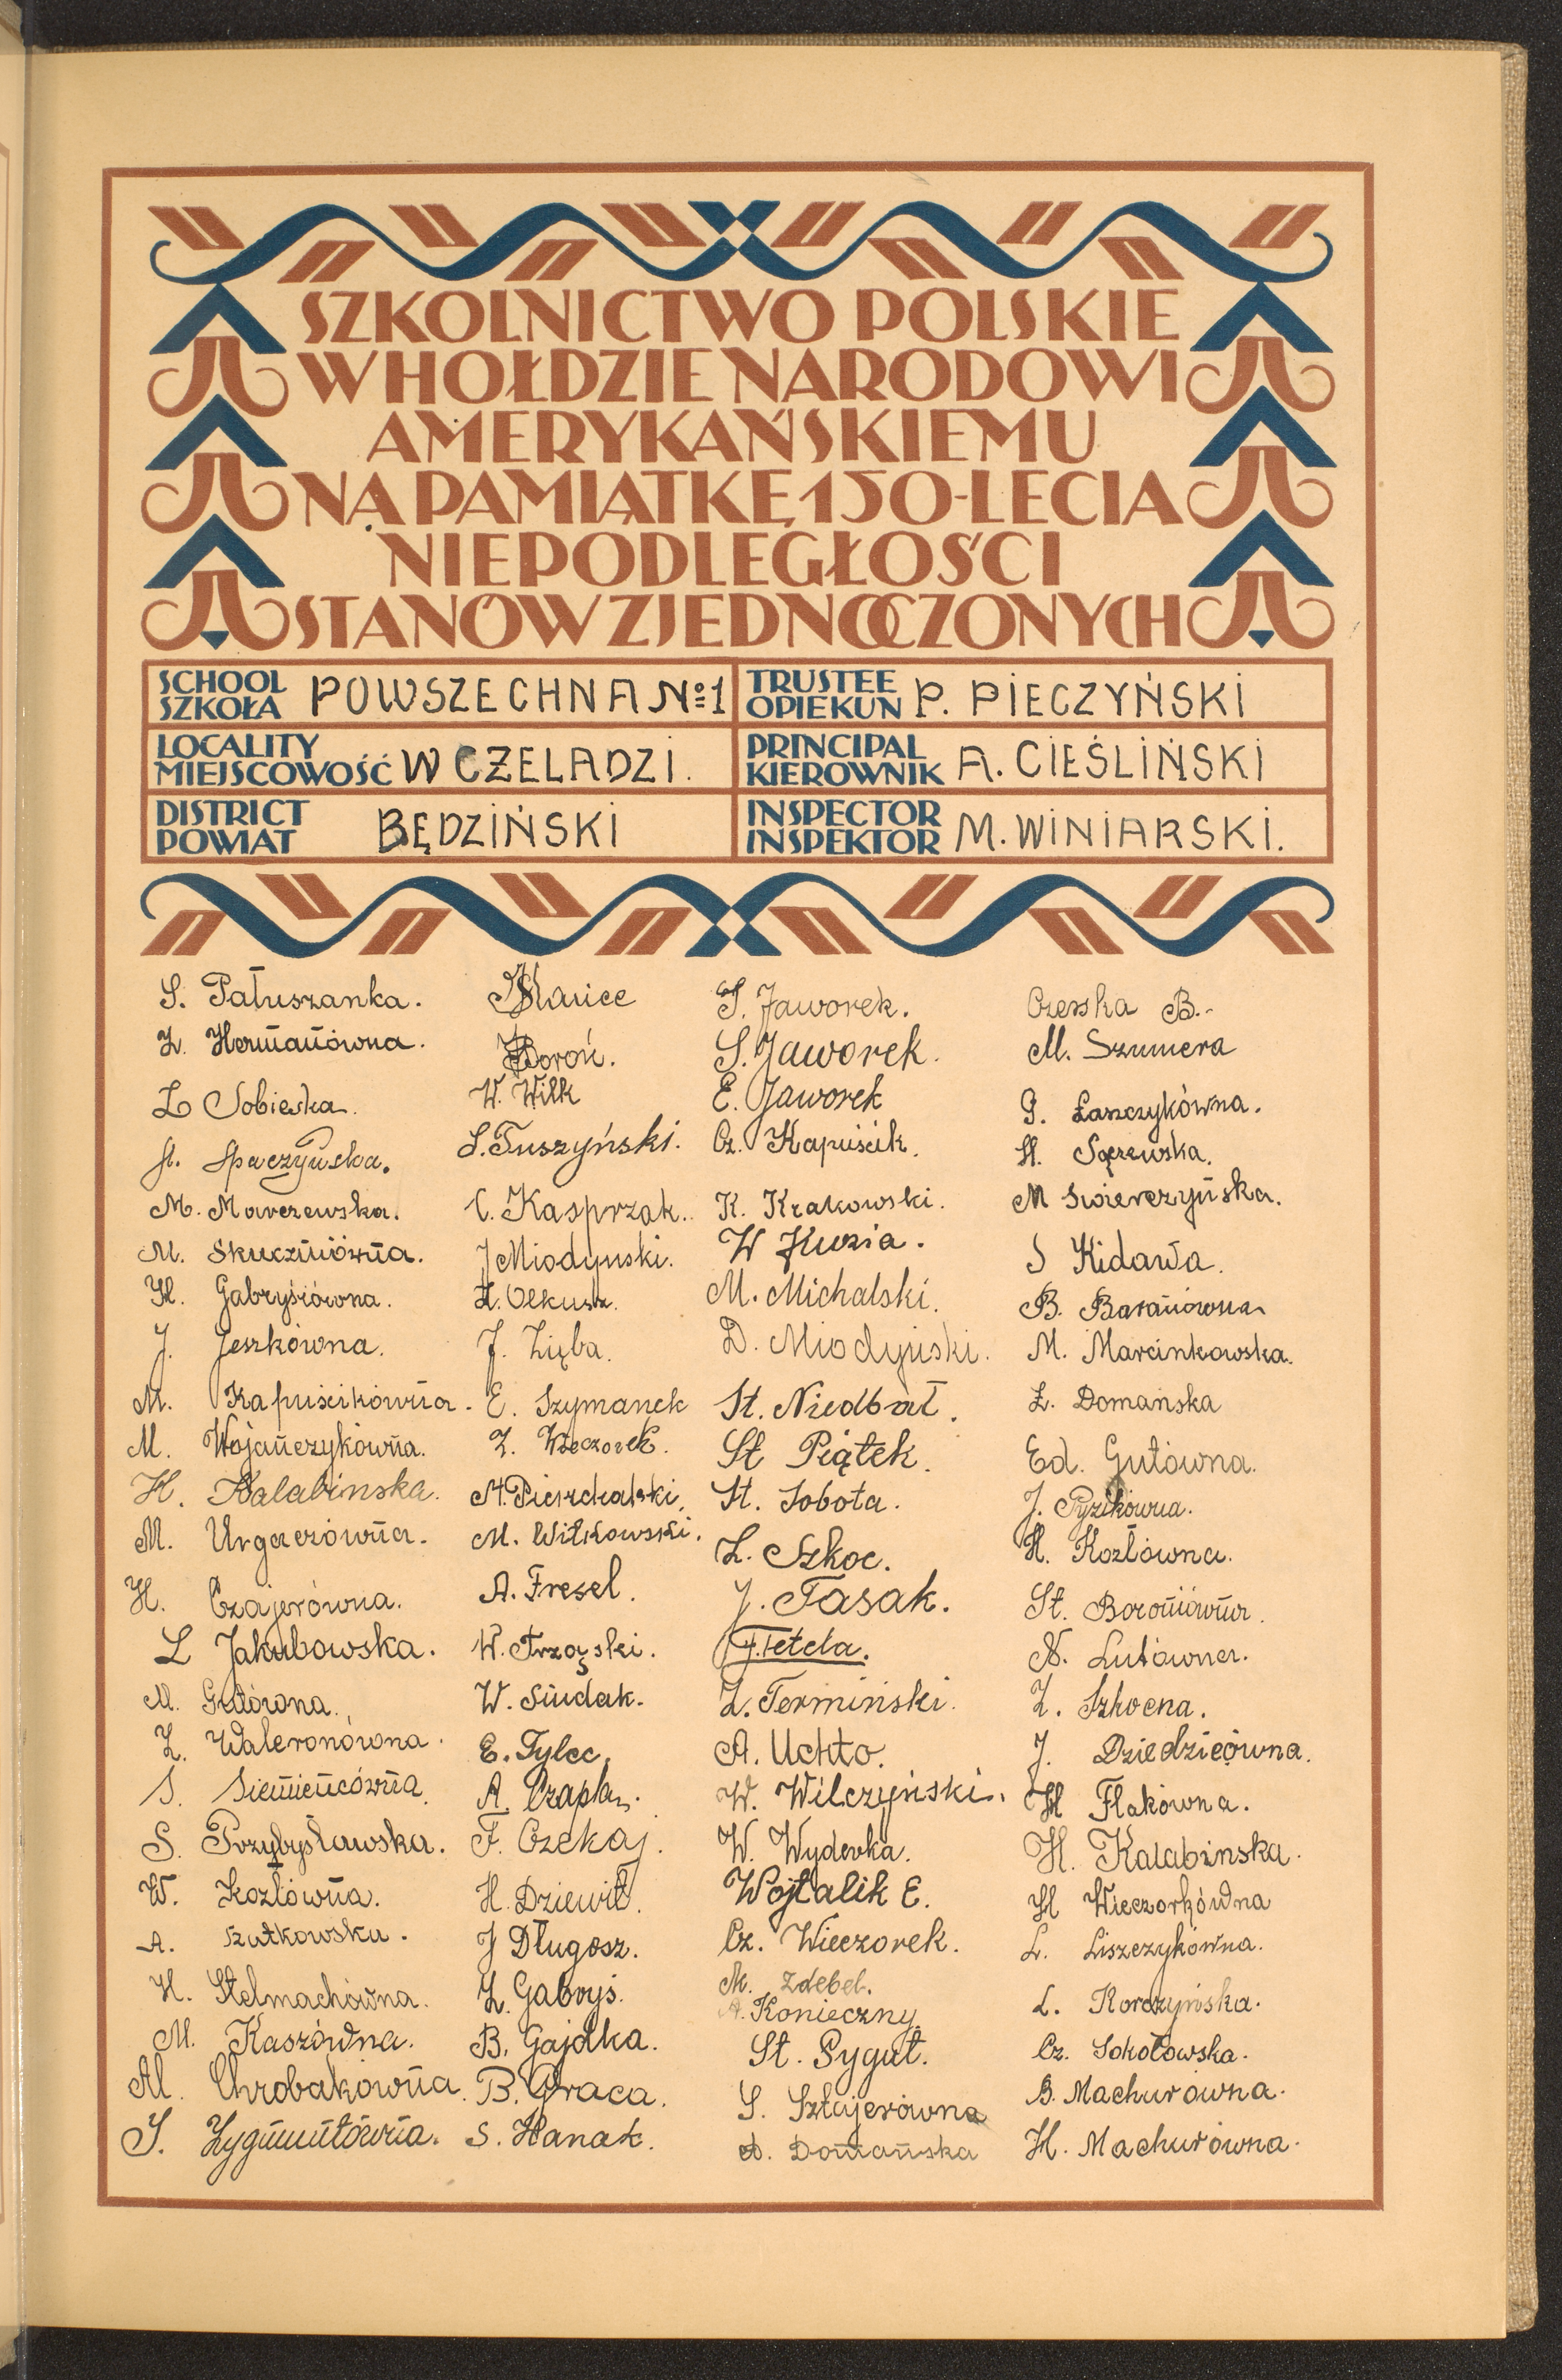 SZKOLNICTWO POLSKIE
W HOŁDZIE NARODOWI
AMERYKAŃSKIEMU
NA PAMIĄTKĘ 150-LECIA
NIEPODLEGŁOŚCI
STANÓW ZJEDNOCZONYCH
SCHOOL
SZKOŁA POWSZECHNA Nº 1
TRUSTEE
OPIEKUN P. PIECZYŃSKI
LOCALITY
MIEJSCOWOŚĆ W CZELADZI.
PRINCIPAL
KIEROWNIK A. CIEŚLIŃSKI
DISTRICT
POWIAT BĘDZIŃSKI
INSPECTOR
INSPEKTOR M. WINIARSKI.
S. Pałuszanka.
Z. Hermanówna.
Z Sobieska.
A. Spaczyńska.
M. Marczewska.
M. Skuczniówna.
H. Gabrysiówna.
J. Jeszkówna.
M. Kapuścikówna.
M. Wojańczykówna.
H. Kalabinska.
M. Urgaczówna.
H. Czajerówna.
L Jakubowska.
M. Gutówna.
Z. Waleronówna.
S. Siemieńcówna.
S. Przybysławska.
W. Kozłówna.
A. Szutkowska.
H. Stelmachówna.
M. Kaszówna.
Al. Chrobakówna.
S. Zygmuntówna.
Maliec
Woroń.
W. Wilk
S. Tuszyński.
C. Kasprzak.
J Miodyński.
H. Olkusz.
J. Zięba.
E. Szymanek
Z. Wieczorek.
M. Pierzchalski.
M. Witkowski.
A. Fresel.
W. Trząski.
W. Siudak.
E. Tylec.
A. Czapla.
F. Czekaj.
H. Dziewit.
J Długosz.
Z. Gabryś.
B. Gajdka.
B. Graca.
S. Hanak.
S. Jaworek.
S. Jaworek.
E. Jaworek
Cz. Kapuścik.
K. Krakowski.
W Kuzia.
M. Michalski.
D. Miodyński.
St. Niedbał.
St Piątek.
St. Sobota.
Z. Szkoc.
J. Tasak.
J. Tetela.
Z. Termiński.
A. Uchto.
W. Wilczyński.
W. Wyderka.
Wojtalik E.
Cz. Wieczorek.
M. Zdebel.
A. Konieczny.
St. Pygut.
S. Sztajerówna
A. Domańska
Czeska B.
M. Szumera
G. Łaszczykówna.
H. Sączewska.
M Swierczyńska.
S Kidawa.
B. Baranówna
M. Marcinkowska.
Z. Domańska
Ed. Gutówna.
J. Pyzikówna.
H. Kozłówna.
St. Boroniówna.
N. Lutówna.
Z. Szkocna.
J. Dziedzicówna.
H Flakówna.
H. Kalabinska.
H Wieczorkówna
L. Liszczykówna.
L. Korczyńska.
Cz. Sokołowska.
B. Machurówna.
H. Machurówna.